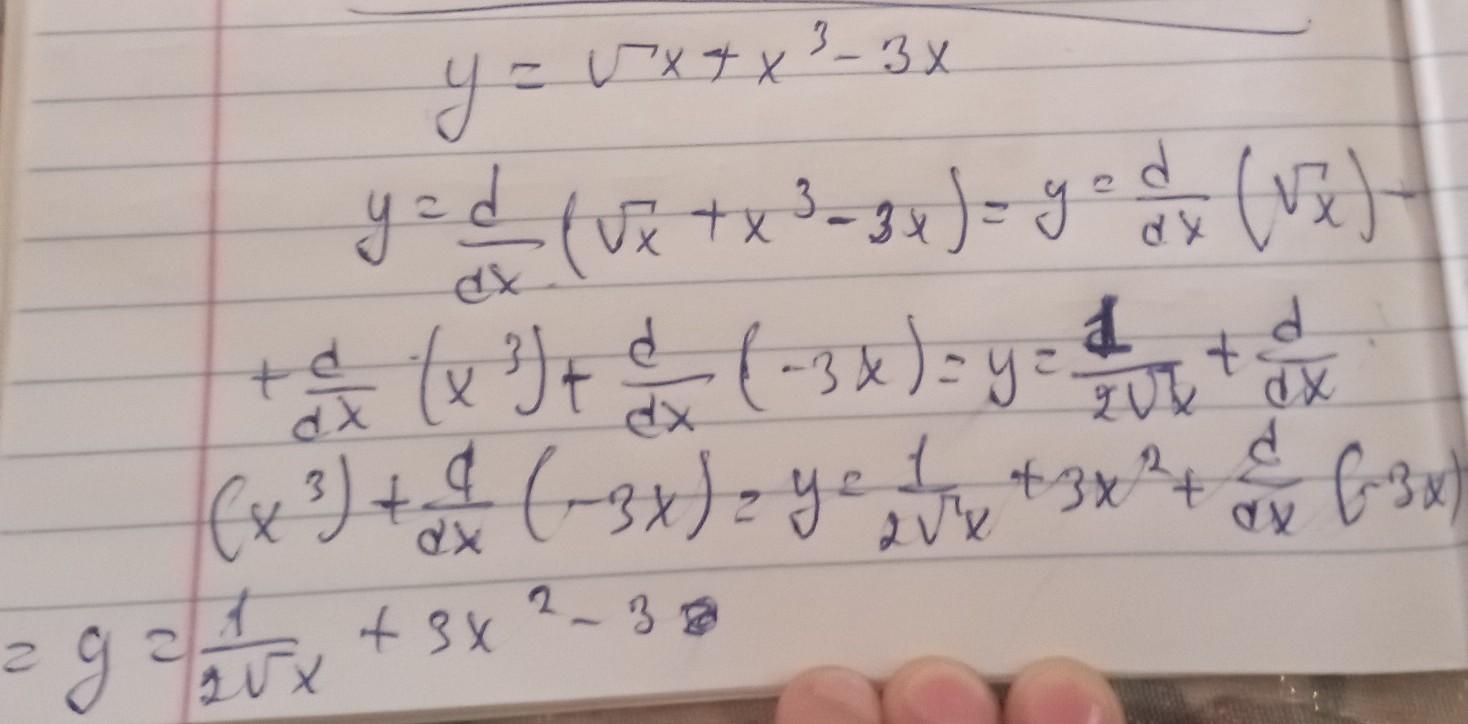 y = √x + x³ - 3x
y = d/dx (√x + x³ - 3x) = y = d/dx (√x) -
+ d/dx (x³) + d/dx (-3x) = y = 1/2√x + d/dx
(x³) + d/dx (-3x) = y = 1/2√x + 3x² + d/dx (-3x)
= y = 1/2√x + 3x² - 3